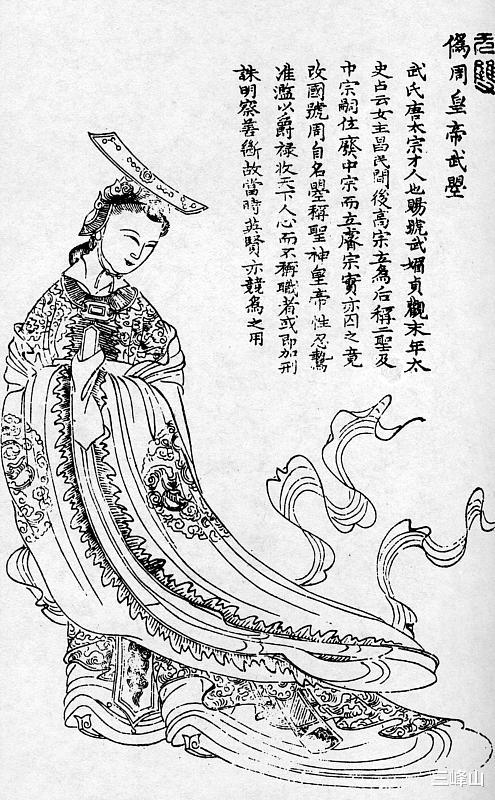 无雙
僞周皇帝武曌
武氏唐太宗才人也賜號武媚貞觀末年太
史占云女主昌民間後高宗立為后稱二聖及
中宗嗣位廢中宗而立睿宗實亦囚之竟
改國號周自名曌稱聖神皇帝性忍鷙
准濫以爵祿收天下人心而不稱職者或即加刑
誅明察善斷故當時英賢亦競為之用
三峰山